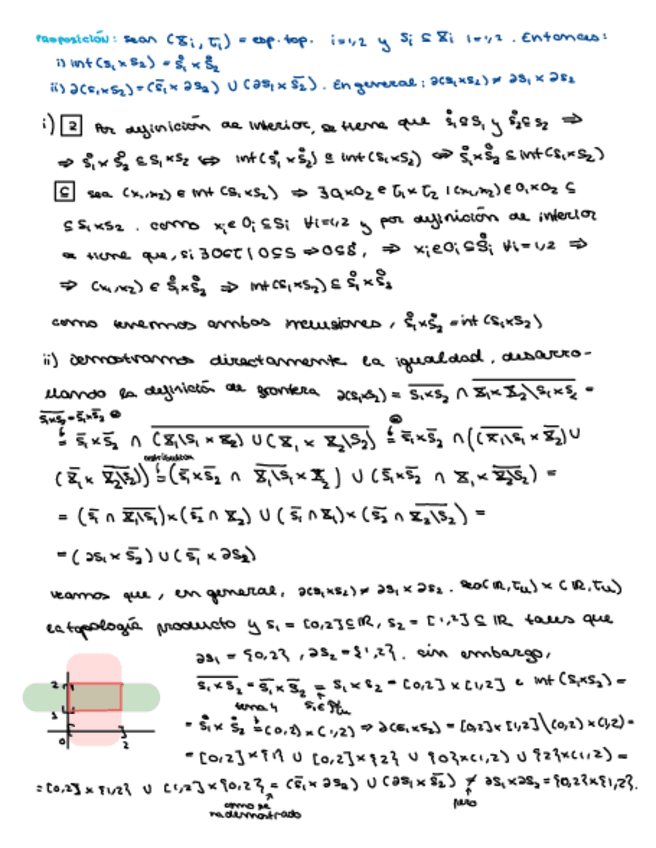 Proposición: sean (X_i, τ_i) = esp. top. i=1,2 y S_i ⊆ X_i i=1,2. Entonces:
i) int(S₁×S₂) = S̊₁ × S̊₂
ii) ∂(S₁×S₂) = (S̄₁ × ∂S₂) ∪ (∂S₁ × S̄₂). En general: ∂(S₁×S₂) ≠ ∂S₁ × ∂S₂
i) ⊇ Por definición de interior, se tiene que S̊₁ ⊆ S₁ y S̊₂ ⊆ S₂ ⇒
⇒ S̊₁ × S̊₂ ⊆ S₁×S₂ ⇔ int(S̊₁ × S̊₂) ⊆ int(S₁×S₂) ⇔ S̊₁×S̊₂ ⊆ int(S₁×S₂)
⊆ sea (x₁,x₂) ∈ int(S₁×S₂) ⇒ ∃ O₁×O₂ ∈ τ₁×τ₂ | (x₁,x₂) ∈ O₁×O₂ ⊆
⊆ S₁×S₂. como x_i ∈ O_i ⊆ S_i ∀i=1,2 y por definición de interior
se tiene que, si ∃O∈τ | O⊆S ⇒ O⊆S̊, ⇒ x_i ∈ O_i ⊆ S̊_i ∀i=1,2 ⇒
⇒ (x₁,x₂) ∈ S̊₁×S̊₂ ⇒ int(S₁×S₂) ⊆ S̊₁×S̊₂
como tenemos ambas inclusiones, S̊₁×S̊₂ = int(S₁×S₂)
ii) Demostramos directamente la igualdad, desarro-
llando la definición de frontera ∂(S₁×S₂) = \overline{S₁×S₂} ∩ \overline{X₁×X₂\S₁×S₂} =
\overline{S₁×S₂} = S̄₁×S̄₂
= S̄₁×S̄₂ ∩ \overline{(X₁\S₁ × X₂) ∪ (X₁ × X₂\S₂)} = S̄₁×S̄₂ ∩ ((\overline{X₁\S₁} × X̄₂) ∪
(X̄₁ × \overline{X₂\S₂})) = (S̄₁×S̄₂ ∩ \overline{X₁\S₁} × X₂) ∪ (S̄₁×S̄₂ ∩ X₁ × \overline{X₂\S₂}) =
= (S̄₁ ∩ \overline{X₁\S₁})×(S̄₂ ∩ X₂) ∪ (S̄₁ ∩ X₁)×(S̄₂ ∩ \overline{X₂\S₂}) =
= (∂S₁ × S̄₂) ∪ (S̄₁ × ∂S₂)
veamos que, en general, ∂(S₁×S₂) ≠ ∂S₁ × ∂S₂. Sea (ℝ,τᵤ) × (ℝ,τᵤ)
la topología producto y S₁ = [0,2] ⊆ ℝ, S₂ = [1,2] ⊆ ℝ tales que
∂S₁ = {0,2}, ∂S₂ = {1,2}. sin embargo,
\overline{S₁×S₂} = S̄₁×S̄₂ = S₁×S₂ = [0,2]×[1,2] e int(S₁×S₂) =
tema 4
= S̊₁ × S̊₂ = (0,2)×(1,2) ⇒ ∂(S₁×S₂) = [0,2]×[1,2]\(0,2)×(1,2) =
= [0,2]×{1} ∪ [0,2]×{2} ∪ {0}×(1,2) ∪ {2}×(1,2) =
= [0,2]×{1,2} ∪ [1,2]×{0,2} = (S̄₁×∂S₂) ∪ (∂S₁×S̄₂) ≠ ∂S₁×∂S₂ = {0,2}×{1,2}.
como se pero
ha demostrado
2
1
0 2